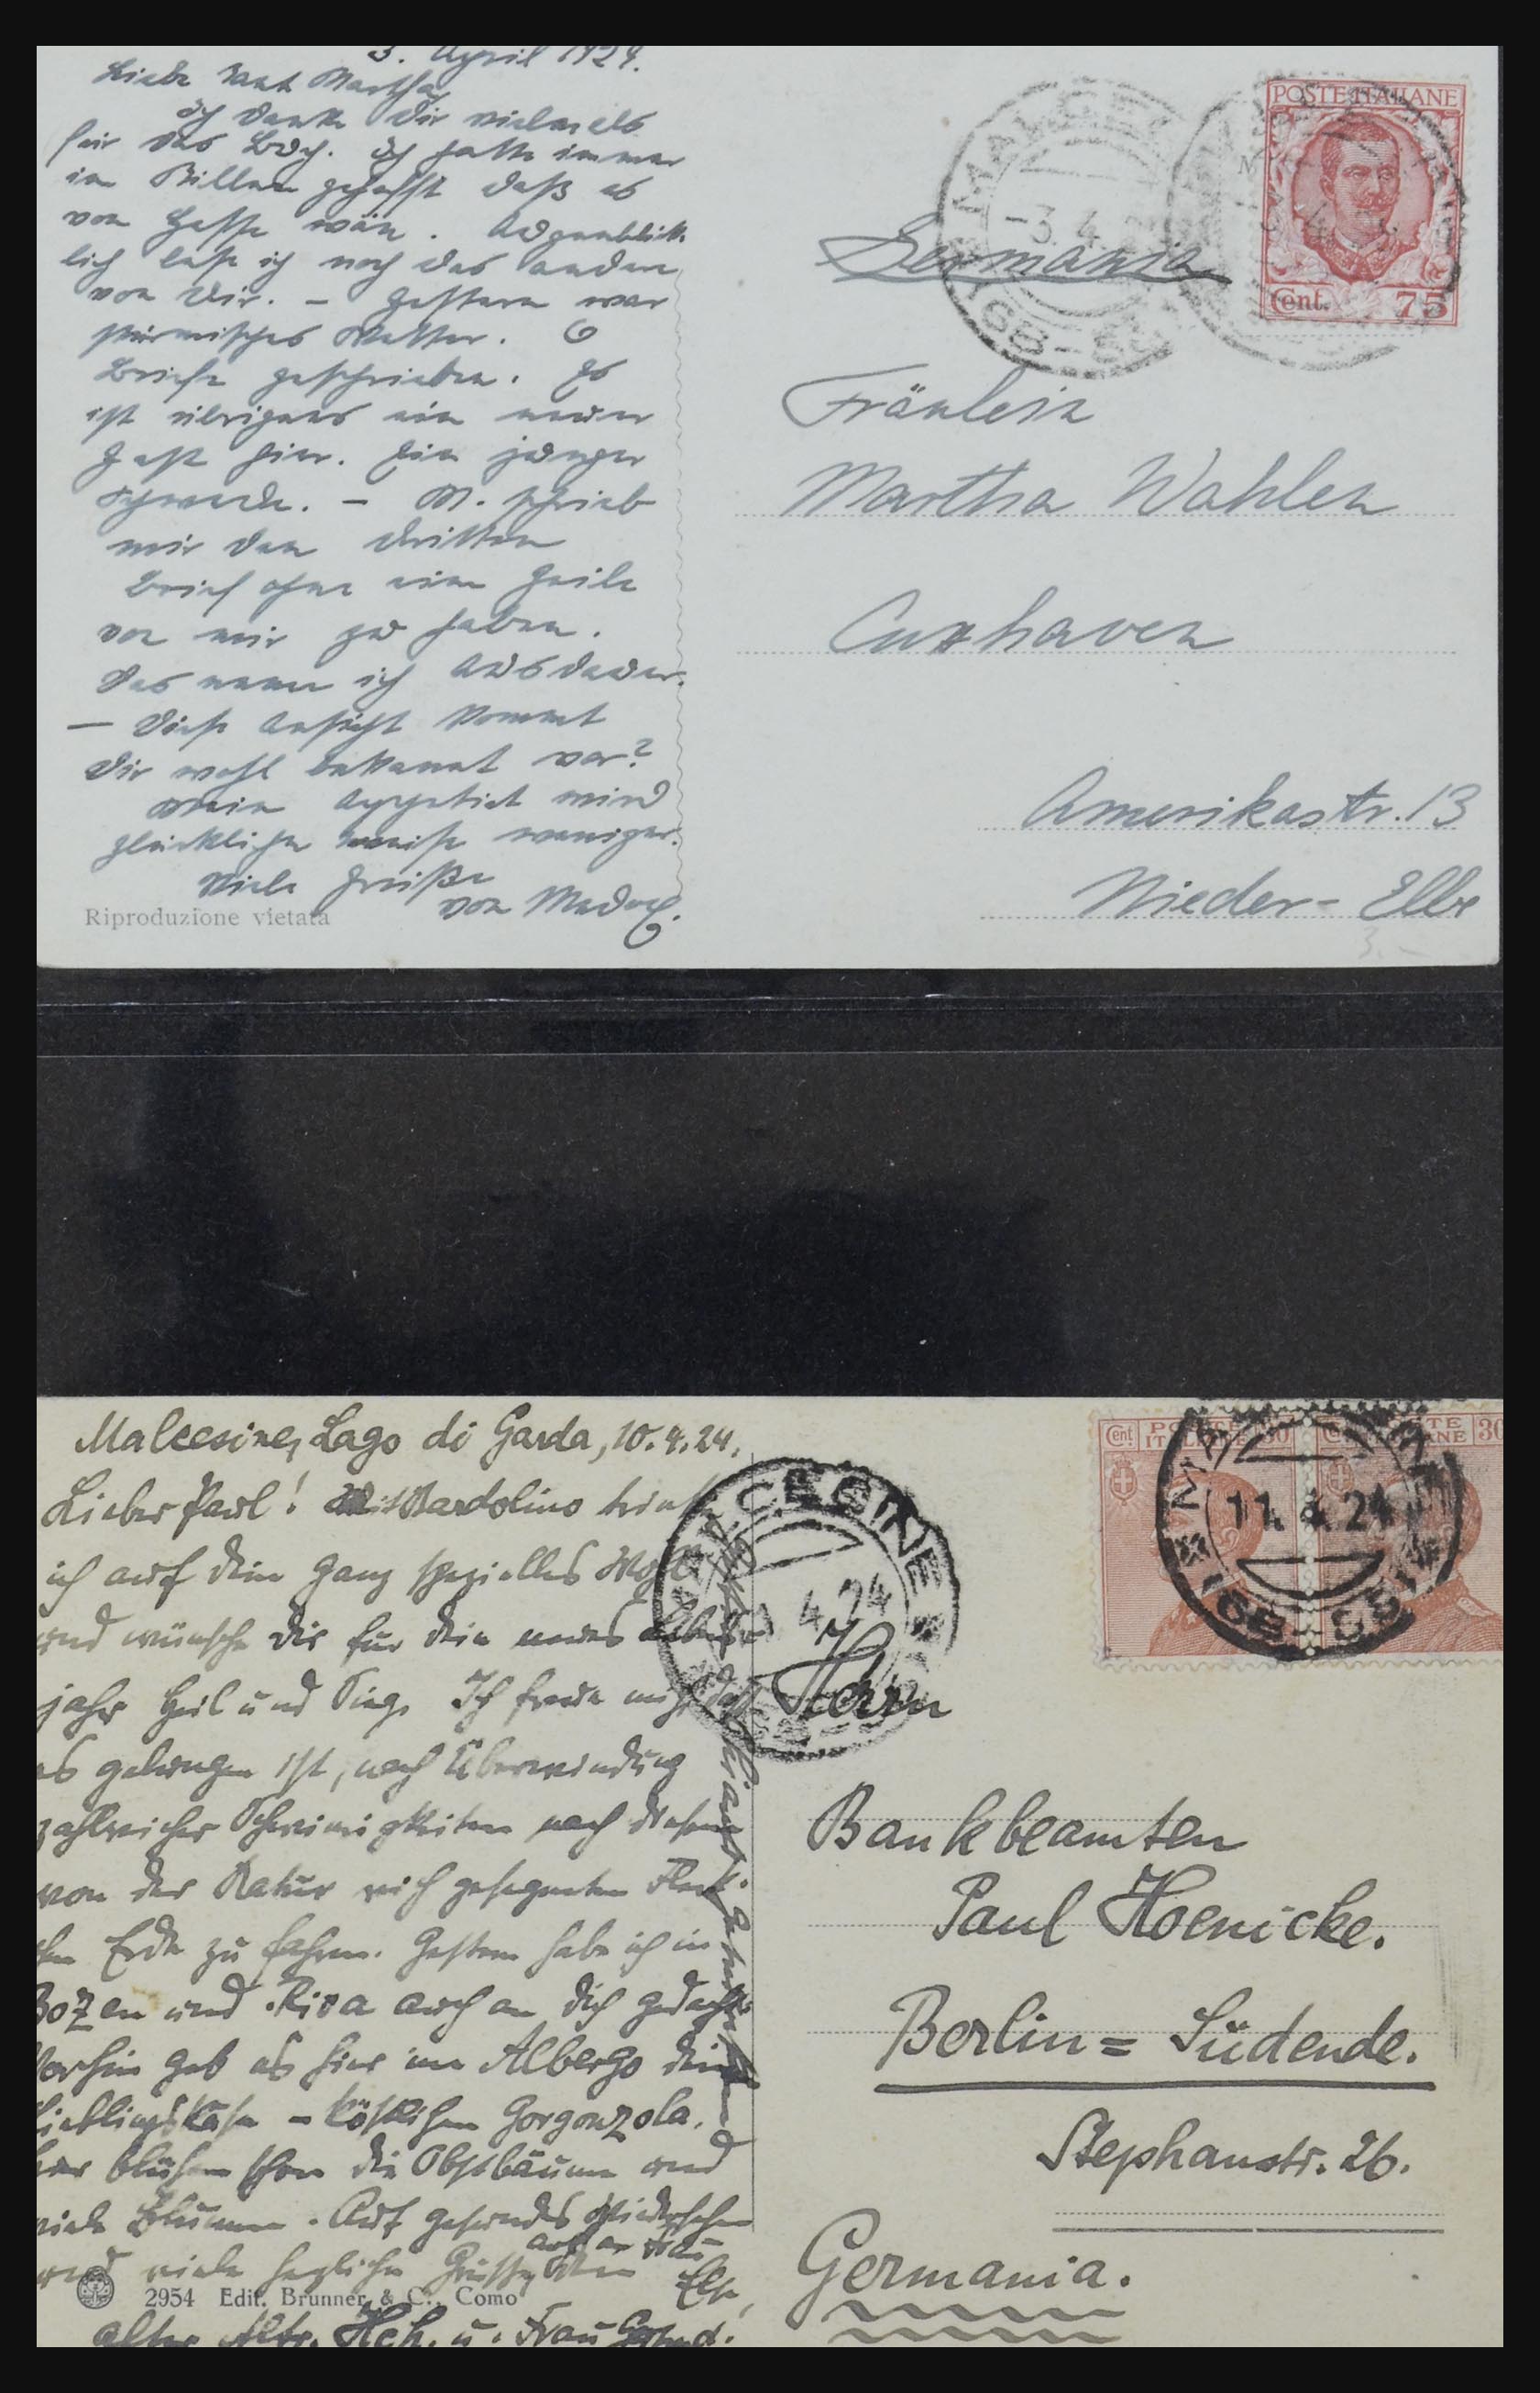 3. April 1924.
Liebe Tant Martha,
ich danke Dir vielmals
für das Buch. Ich hatte immer
im Stillen gehofft daß es
von Hesse wäre. Augenblick-
lich lese ich noch das andere
von Dir. – Gestern war
stürmisches Wetter. 6
Briefe geschrieben. Es
ist übrigens ein neuer
Gast hier. Ein junger
Schwede. – M. schrieb
mir den dritten
Brief ohne eine Zeile
von mir zu haben.
Das nenne ich Ausdauer.
– Diese Ansicht kommt
Dir wohl bekannt vor?
Mein Appetit wird
glücklicher weise weniger.
Viele Grüße
von
Riproduzione vietata
POSTE ITALIANE
Cent. 75
MALCESINE
-3.4.
Germania
Fräulein
Martha Wahlen
Cuxhaven
Amerikastr. 13
Nieder-Elbe
3.-
Malcesine, Lago di Garda, 10.4.24.
Lieber Paul! Mit Bardolino trinke
ich auf Dein ganz spezielles Wohl
und wünsche Dir für Dein neues Lebens-
jahr Heil und Sieg. Ich freue mich, daß
es gelungen ist, nach Überwindung
zahlreicher Schwierigkeiten nach diesem
von der Natur reich gesegneten Fleck-
chen Erde zu fahren. Gestern habe ich in
Bozen und Riva auch an Dich gedacht.
Vorhin gab es hier im Albergo Dein
Lieblingskäse – köstlichen Gorgonzola.
Hier blühen schon die Obstbäume und
viele Blumen. Auf gesundes Wiedersehen
und viele herzliche Grüsse, auch an Frau
Else,
Dein
alter Hch. u. Frau
2954 Edit. Brunner & C., Como
MALCESINE
4.24
Cent. 30 POSTE ITALIANE 30
MALCESINE
11.4.24
Herrn
Bankbeamten
Paul Hoenicke.
Berlin = Südende.
Stephanstr. 26.
Germania.